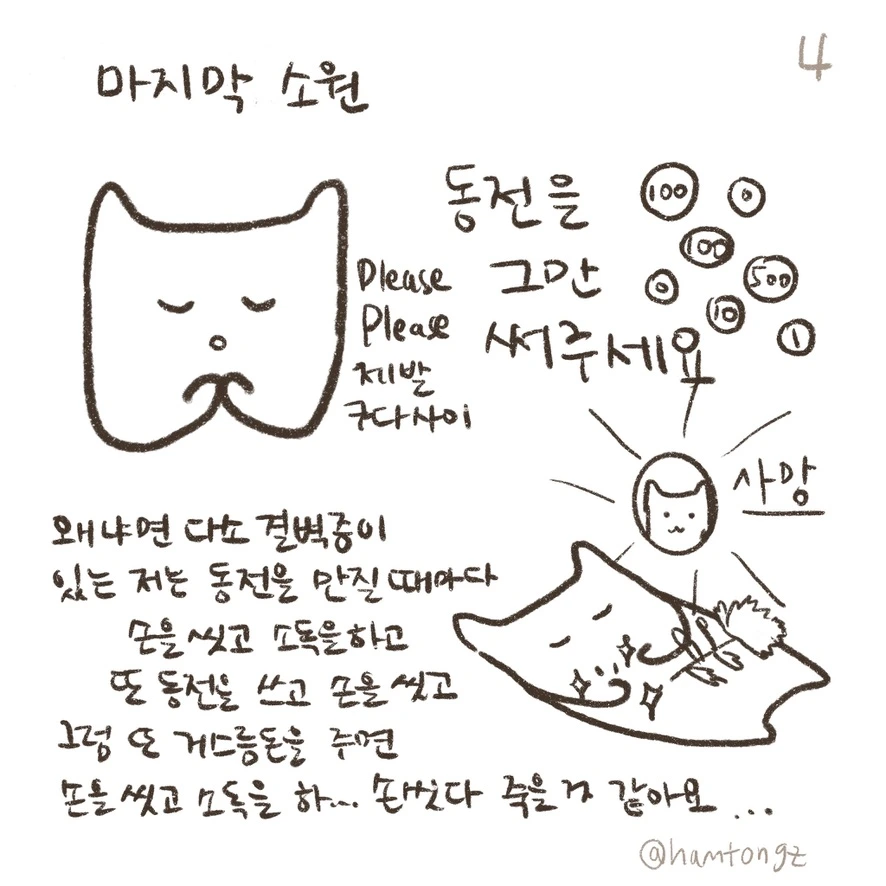 4
마지막 소원
동전을
그만
써주세요
100
0
100
0
500
10
1
Please
Please
제발
쿠다사이
사망
왜냐면 다소 결벽증이
있는 저는 동전을 만질때마다
손을 씻고 소독을하고
또 동전을 쓰고 손을 씻고
그럼 또 거스름돈을 주면
손을 씻고 소독을 하... 손씻다 죽을거 같아요 ...
@hamtongz